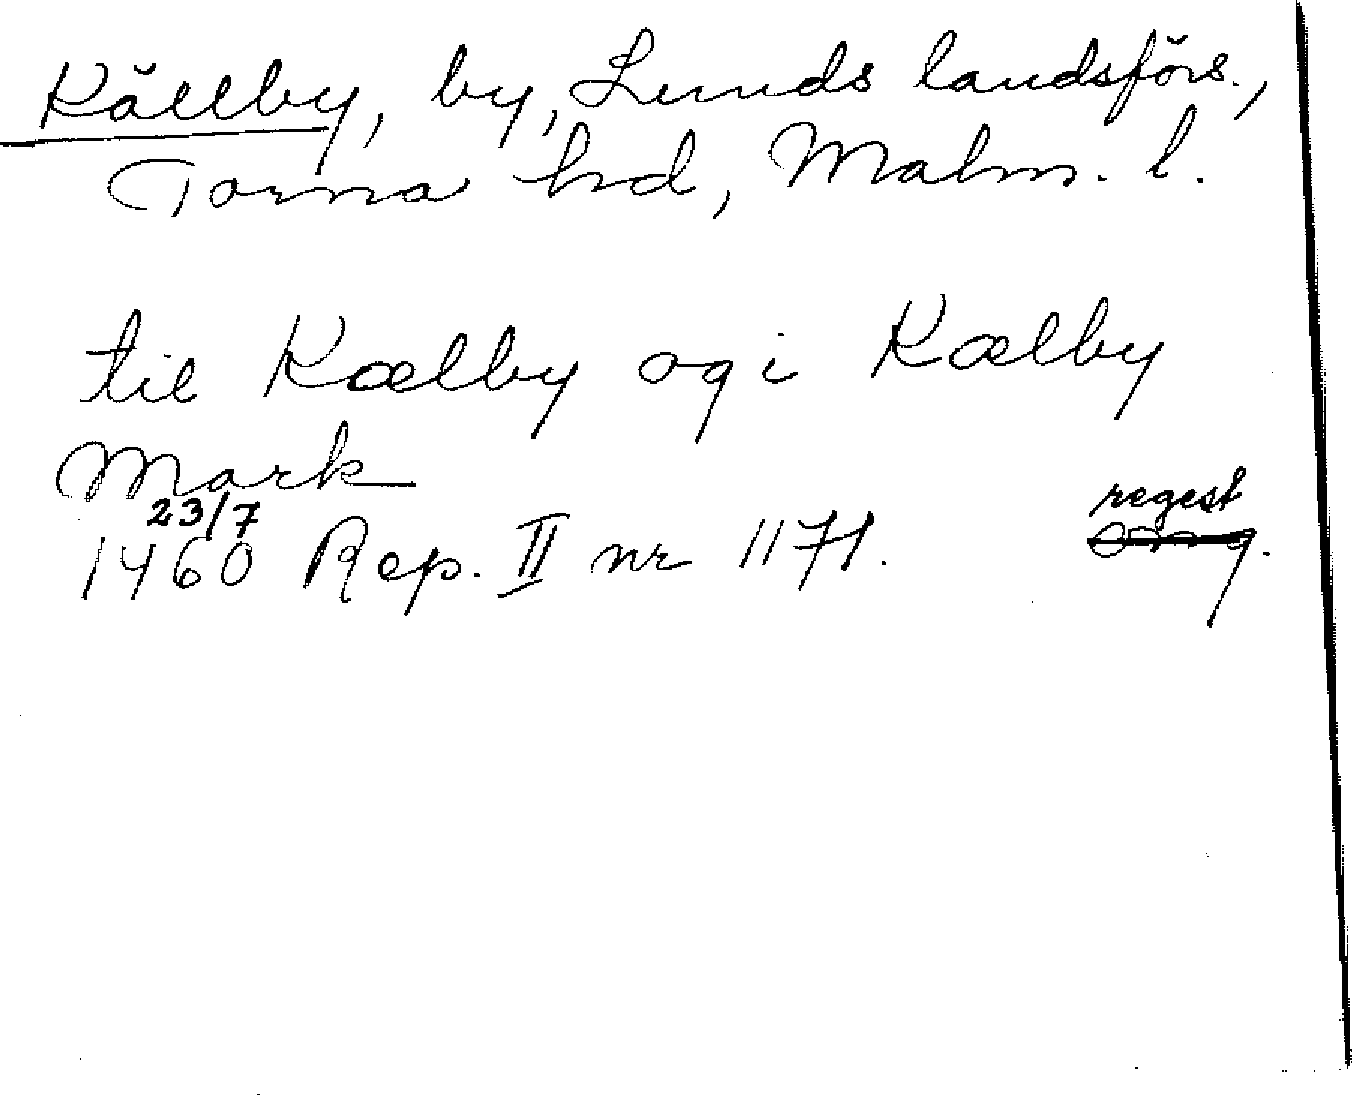 Källby, by, Lunds landsförs.,
Torna hd, Malm. l.
til Kælby og i Kælby
Mark
23/7
1460 Rep. II nr 1171.
regest
omg.